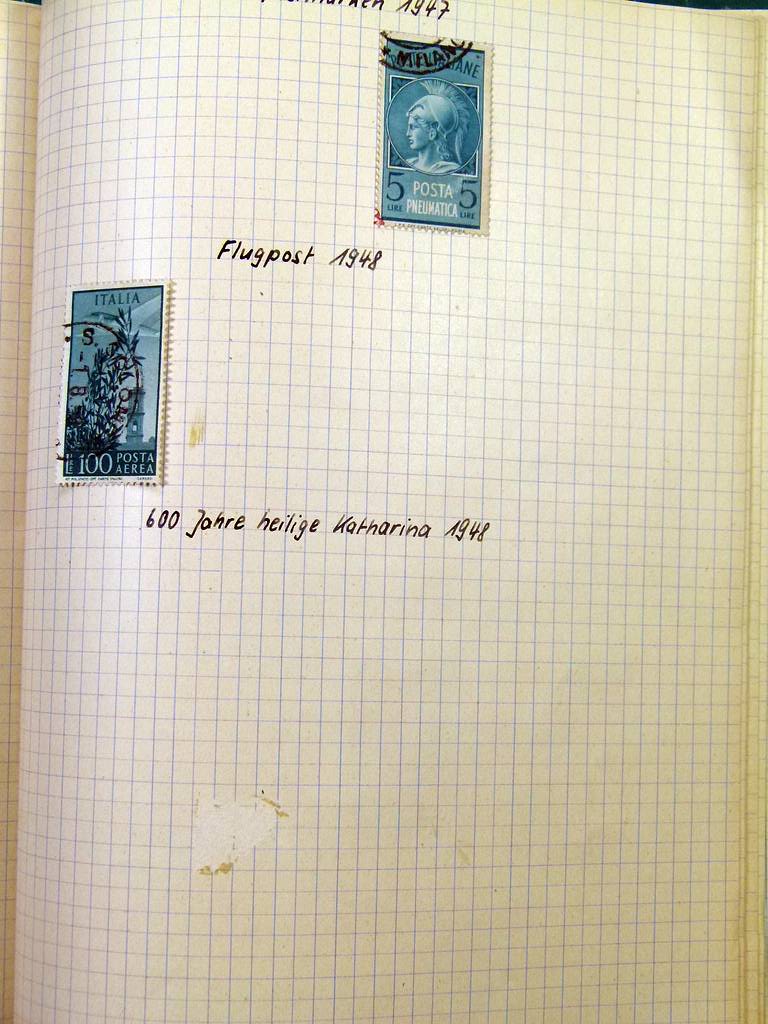 1947
MILA
IANE
5 POSTA 5
LIRE PNEUMATICA LIRE
Flugpost 1948
ITALIA
S.
LIRE 100 POSTA
AEREA
600 Jahre heilige Katharina 1948